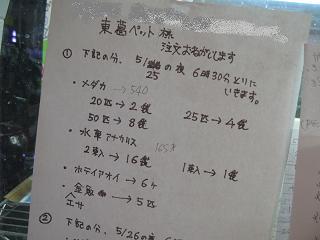 東葛ペット様
注文おねがいします
① 下記の分、5/25の夜 6時30分とりに
いきます。
・メダカ →540
20匹→2袋 25匹→4袋
50匹→8袋
・水草アナカリス
2束入→16袋 1束入→1袋
・ホテイアオイ→6ヶ
・金魚 →5匹
エサ
② 下記の分、5/26の夜